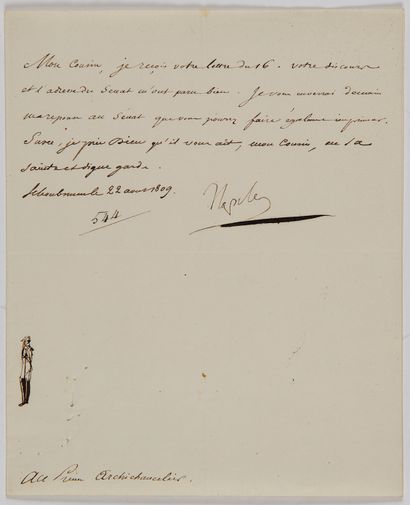 Mon Cousin, je reçois votre lettre du 16. votre discours
et l'adresse du Senat m'ont paru bien. Je vous enverrai demain
ma reponse au Sénat que vous pourrez faire également imprimer.
Sur ce, je prie Dieu qu'il vous ait, mon Cousin, en sa
sainte et digne garde.
Schonbrunn le 22 aout 1809.
544
Napole
Au Prince Archichancelier.